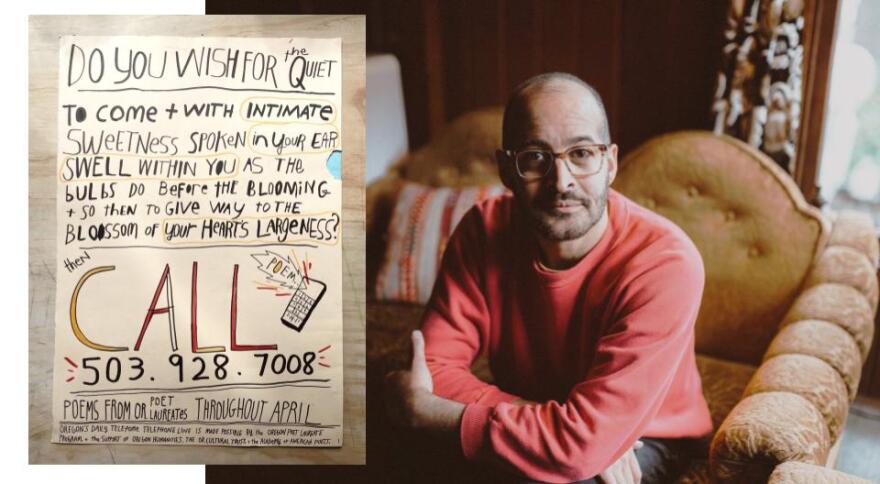 DO YOU WISH FOR the QUIET
TO COME + WITH INTIMATE
SWEETNESS SPOKEN in YOUR EAR
SWELL WITHIN YOU AS THE
BULBS DO BEFORE THE BLOOMING
+ SO THEN TO GIVE WAY TO THE
BLOSSOM OF YOUR HEART'S LARGENESS?
then
CALL
POEM
503.928.7008
POEMS FROM OR POET LAUREATES THROUGHOUT APRIL
OREGON'S DAILY TELEPOME TELEPHONE LINE IS MADE POSSIBLE BY the OREGON POET LAUREATE
PROGRAM + the SUPPORT OF OREGON HUMANITIES, THE OR CULTURAL TRUST + the ACADEMY OF AMERICAN POETS.